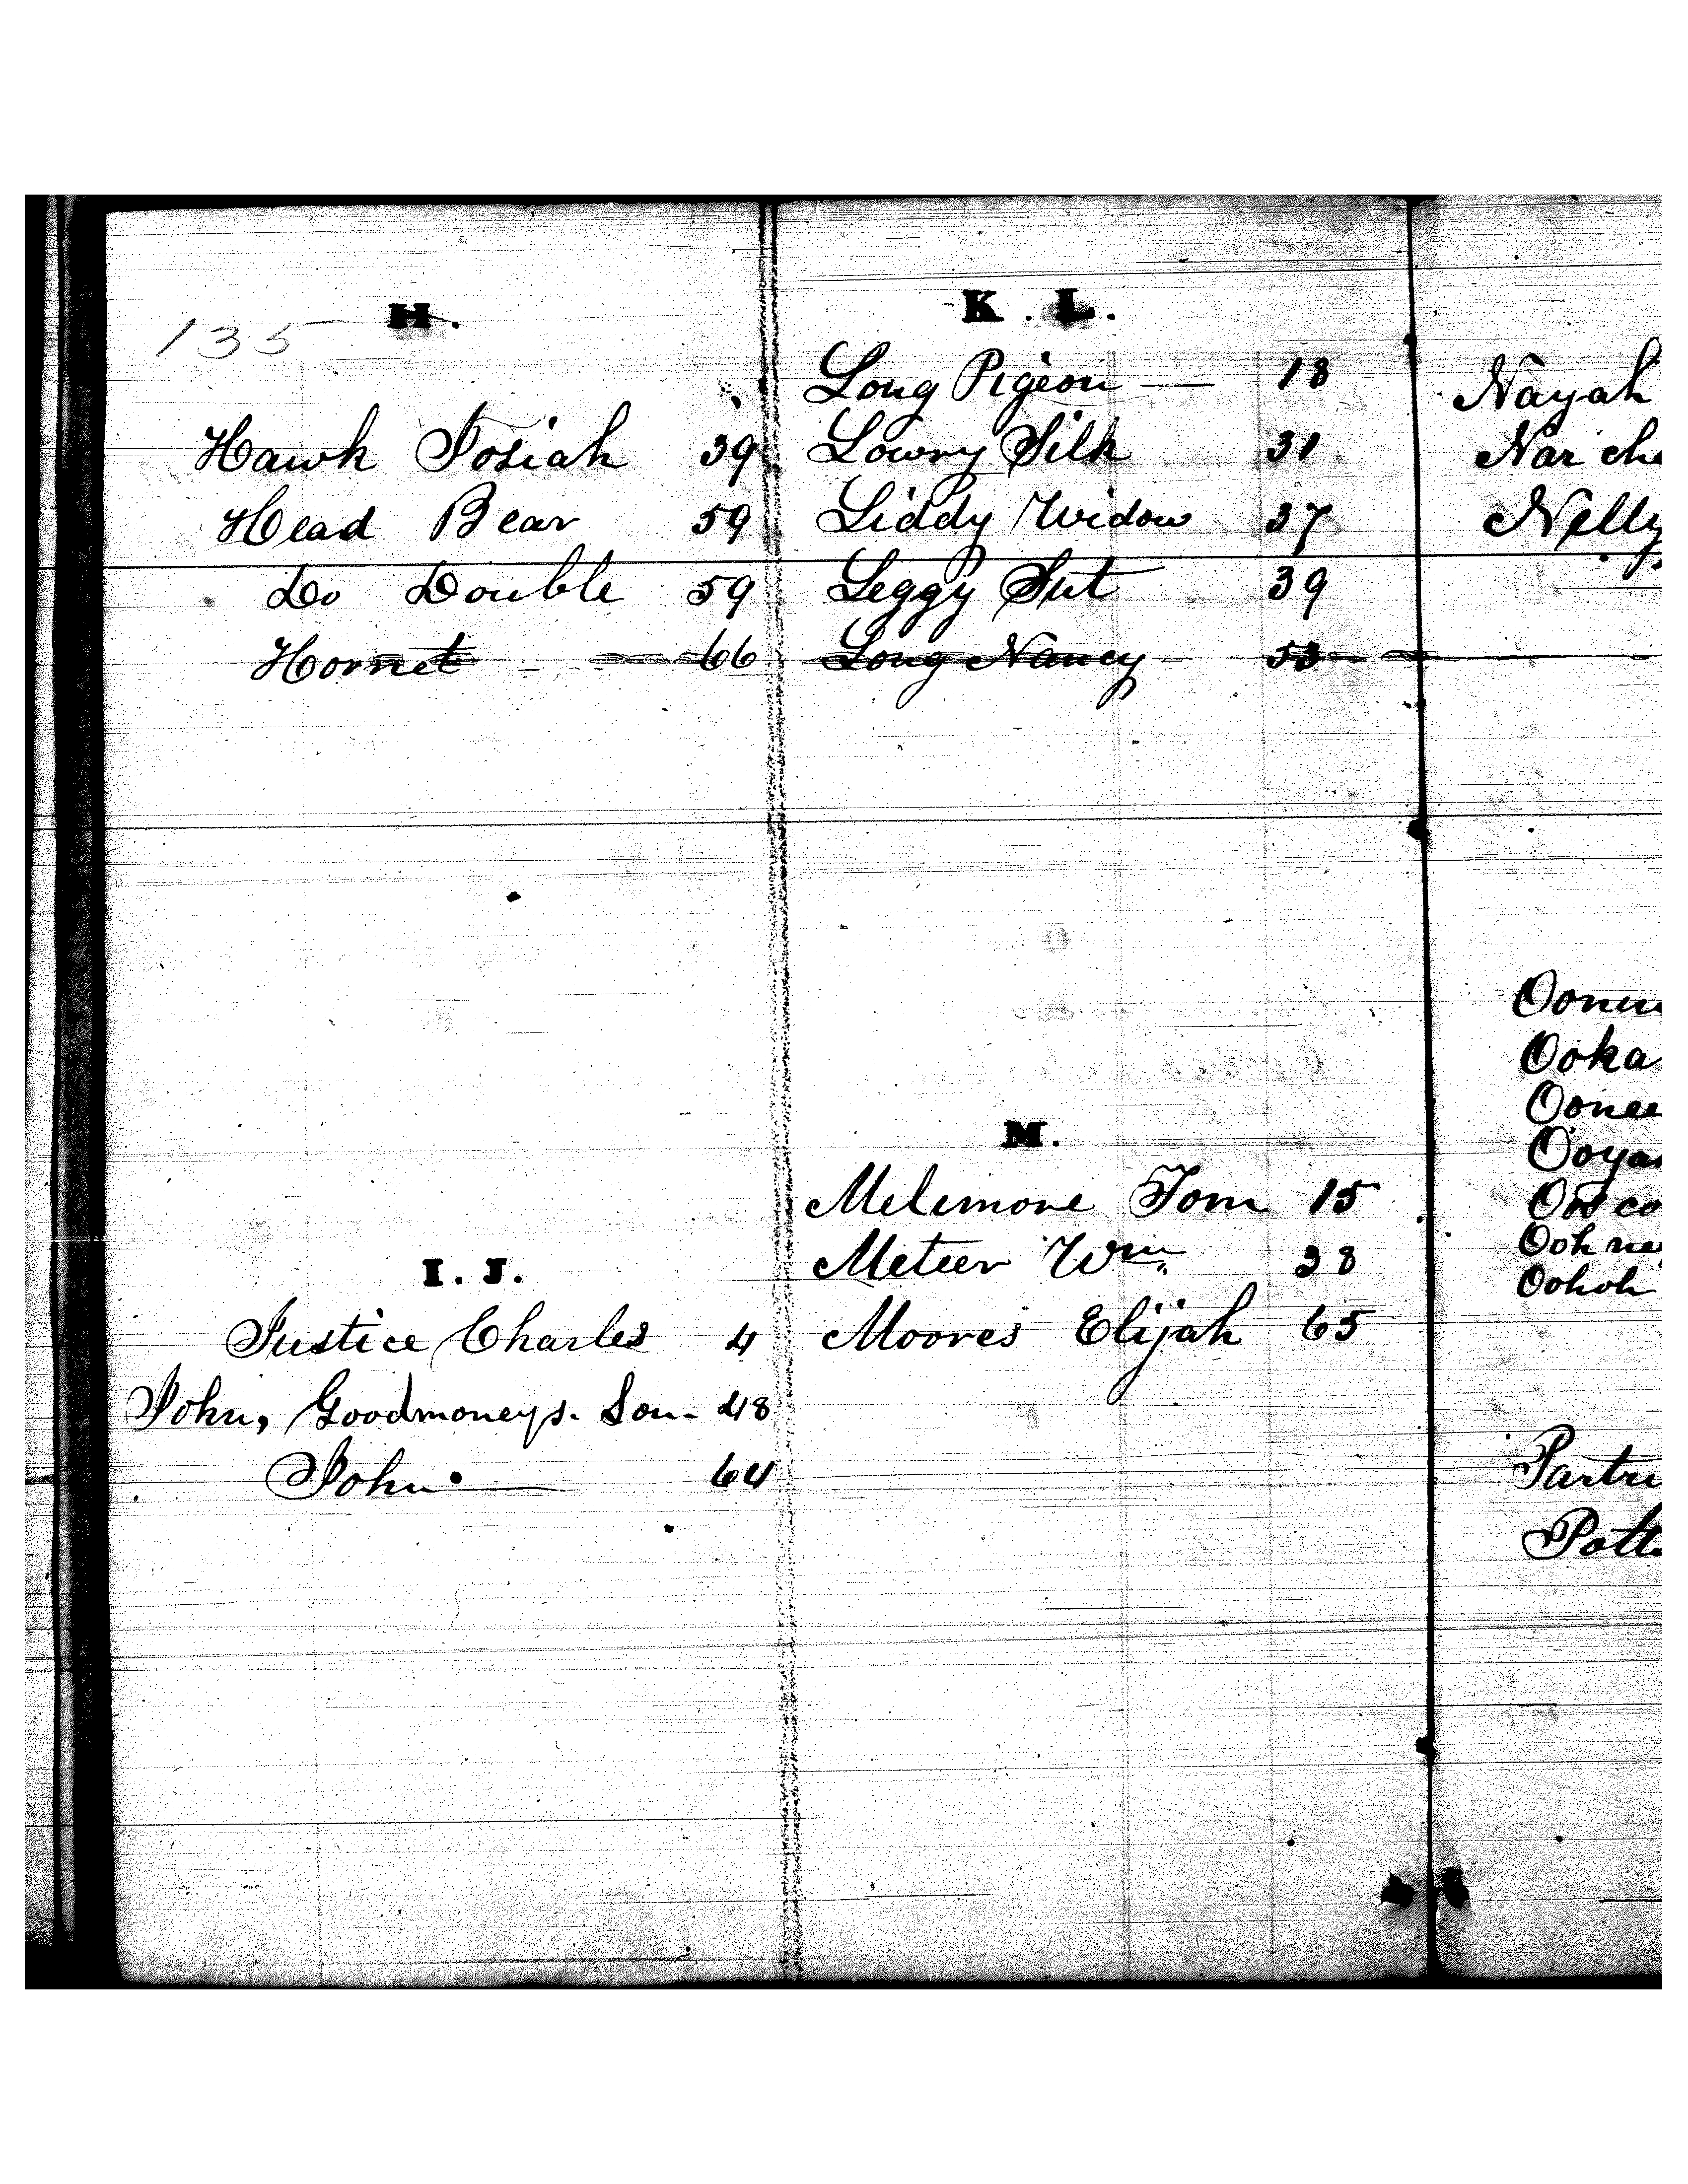 135
H.
Hawk Josiah 39
Head Bear 59
Do Double 59
Hornet 66
I. J.
Justice Charles 4
John, Goodmoneys. Son. 48
John 64
K. L.
Long Pigeon — 18
Lowry Silk 31
Liddy Widow 37
Leggy Sut 39
Long Nancy 53
M.
Melemore Tom 15
Meteer Wm. 28
Moores Elijah 65
Nayah
Nar che
Nelly
Ooka
Oonee
Ooya
Oos co
Ooh ne
Oohoh
Partri
Pott